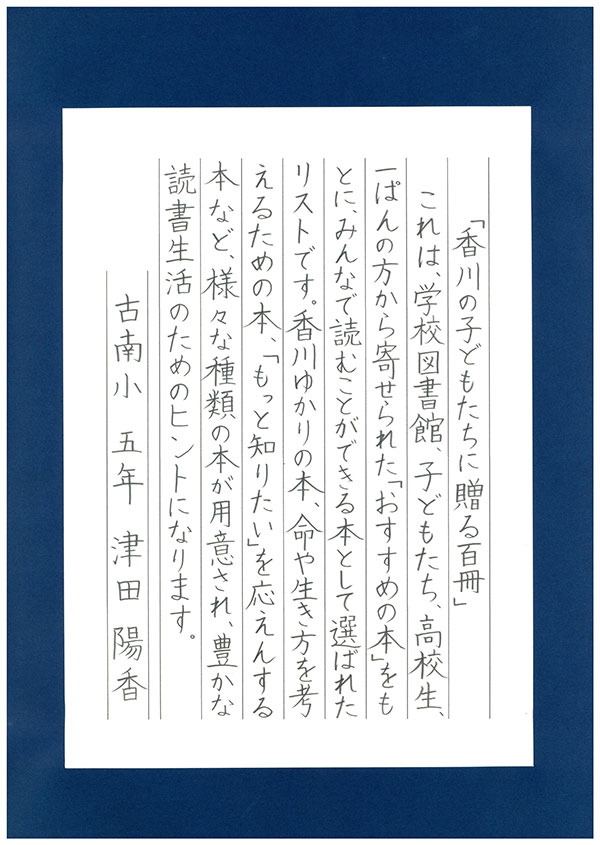 「香川の子どもたちに贈る百冊」
これは、学校図書館、子どもたち、高校生、
一ぱんの方から寄せられた「おすすめの本」をも
とに、みんなで読むことができる本として選ばれた
リストです。香川ゆかりの本、命や生き方を考
えるための本、「もっと知りたい」を応えんする
本など、様々な種類の本が用意され、豊かな
読書生活のためのヒントになります。
古南小 五年 津田 陽香